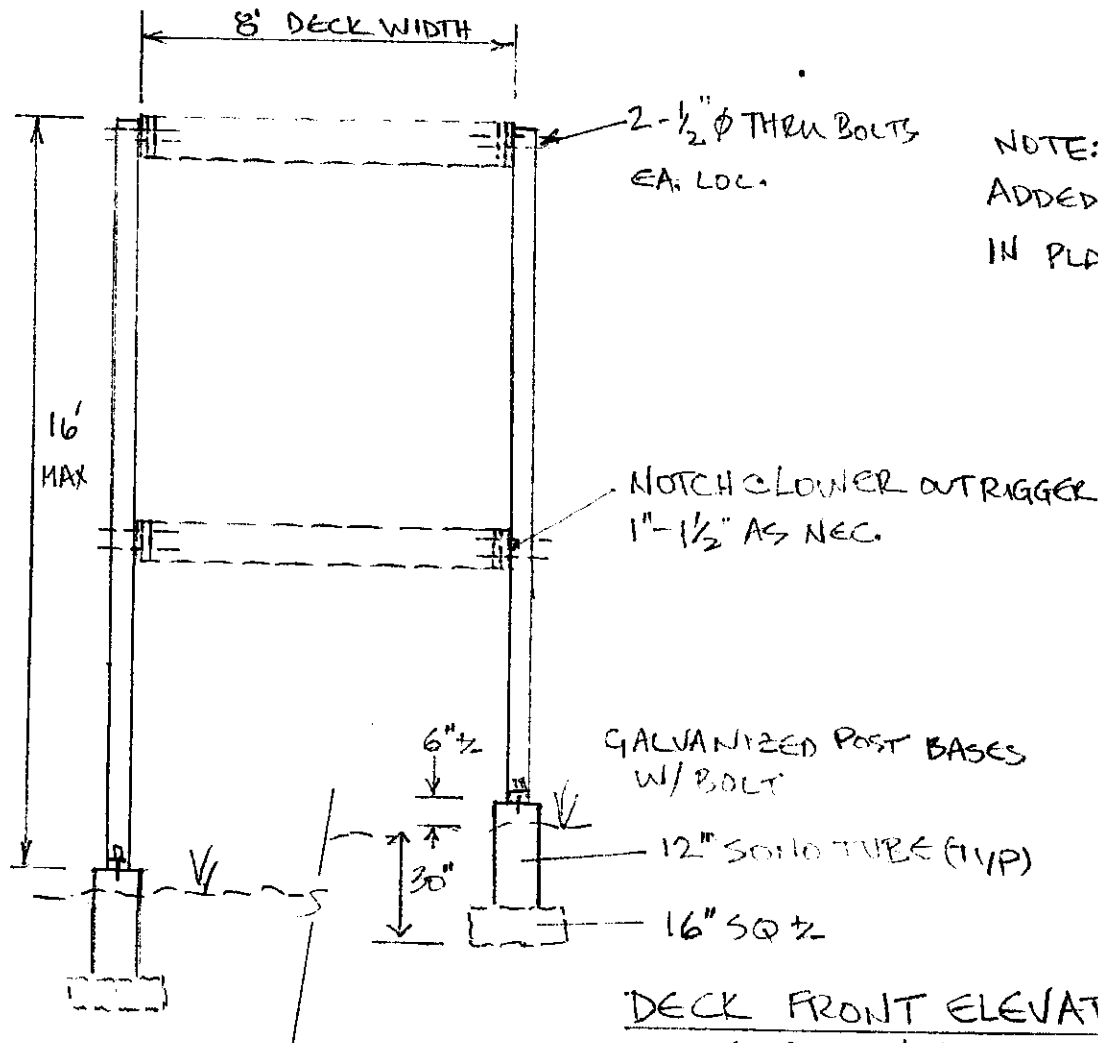 8' DECK WIDTH
2-1/2" Ø THRU BOLTS
EA. LOC.
NOTE:
ADDED
IN PLA
16'
MAX
NOTCH @ LOWER OUTRIGGER
1"-1 1/2" AS NEC.
6" +/-
GALVANIZED POST BASES
W/ BOLT
12" SONO TUBE (TYP)
30"
16" SQ +/-
DECK FRONT ELEVAT